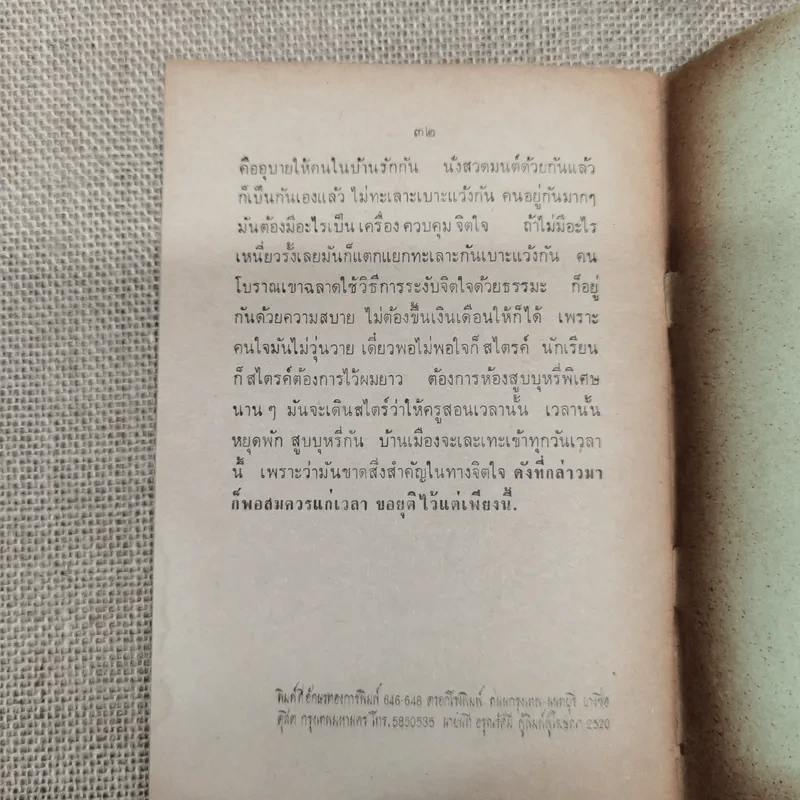 ๓๒
คืออุบายให้คนในบ้านรักกัน นั่งสวดมนต์ด้วยกันแล้ว
ก็เป็นกันเองแล้ว ไม่ทะเลาะเบาะแว้งกัน คนอยู่กันมากๆ
มันต้องมีอะไรเป็น เครื่อง ควบคุม จิตใจ ถ้าไม่มีอะไร
เหนี่ยวรั้งเลยมันก็แตกแยกทะเลาะกันเบาะแว้งกัน คน
โบราณเขาฉลาดใช้วิธีการระงับจิตใจด้วยธรรมะ ก็อยู่
กันด้วยความสบาย ไม่ต้องขึ้นเงินเดือนให้ก็ได้ เพราะ
คนใจมันไม่วุ่นวาย เดี๋ยวพอไม่พอใจก็ สไตรค์ นักเรียน
ก็ สไตรค์ต้องการไว้ผมยาว ต้องการห้องสูบบุหรี่พิเศษ
นาน ๆ มันจะเดินสไตร์ว่าให้ครูสอนเวลานั้น เวลานั้น
หยุดพัก สูบบุหรี่กัน บ้านเมืองจะเละเทะเข้าทุกวันเวลา
นี้ เพราะว่ามันขาดสิ่งสำคัญในทางจิตใจ ดังที่กล่าวมา
ก็พอสมควรแก่เวลา ขอยุติ ไว้แต่เพียงนี้.
พิมพ์ที่ อักษรทองการพิมพ์ 646-648 ตรอกโรงพิมพ์ ถนนกรุงเทพ-นนทบุรี บางซื่อ
ดุสิต กรุงเทพมหานคร โทร. 5850535 ผู้พิมพ์ผู้โฆษณา 2520